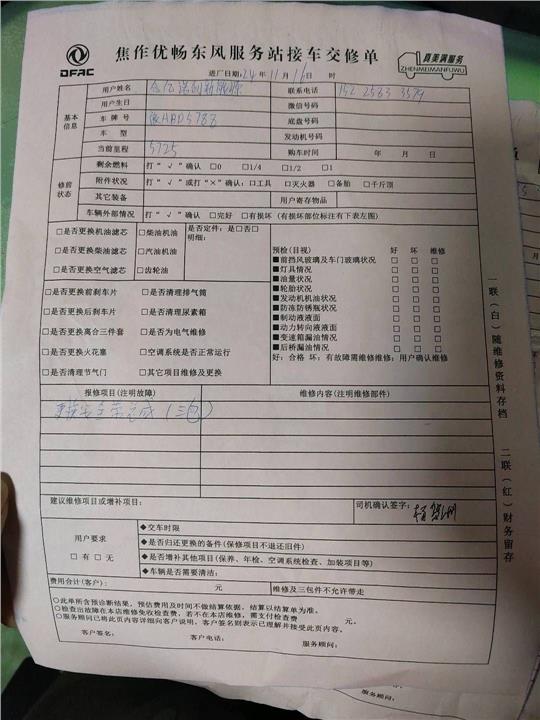 DFAC
焦作优畅东风服务站接车交修单
真美满服务
ZHENMEIMANFUWU
进厂日期:24年11月16日 时
基本信息
用户姓名
联系电话 152 2583 3579
用户生日 微信号码
车牌号 豫HAD5788 底盘号码
车型 发动机号码
当前里程 5725 购车时间 年 月 日
修前状态
剩余燃料 打“√”确认 □0 □1/4 □1/2 □1
附件状况 打“√”或打“×”确认:□工具 □灭火器 □备胎 □千斤顶
其它装备 用户寄存物品
车辆外部情况 打“√”确认 □完好 □有损坏 (有损坏部位标注有下表左图)
□是否更换机油滤芯 □柴油机油
□是否更换柴油滤芯 □汽油机油
□是否更换空气滤芯 □齿轮油
是否定件: 是□否□
明细:
□是否更换前刹车片 □是否清理排气筒
□是否更换后刹车片 □是否清理尿素箱
□是否更换离合三件套 □是否为电气维修
□是否更换火花塞 □空调系统是否正常运行
□是否清理节气门 □其它项目维修及更换
预检(目视) 好 坏 维修
■前挡风玻璃及车门玻璃状况 □ □ □
■灯具情况 □ □ □
■油量状况 □ □ □
■轮胎状况 □ □ □
■发动机机油状况 □ □ □
■防冻防锈瓶状况 □ □ □
■制动液液面 □ □ □
■动力转向液液面 □ □ □
■变速箱漏油情况 □ □ □
■后桥漏油情况 □ □ □
好:合格 坏:有故障需维修维修:用户确认维修
报修项目(注明故障) 维修内容(注明维修部件)
更换安全带总成(三包)
建议维修项目或增补项目: 司机确认签字:
用户要求
□有 □无
◆交车时限
◆是否归还更换的备件(保修项目不退还旧件)
◆是否增补其他项目(保养、年检、空调系统检查、加装项目等)
◆车辆是否需要清洁:
费用合计(客户): 元 维修及三包件不允许带走
○此单所含预诊断结果,预估费用及时间不做结算依据,结算以结算单为准。
○检查出故障在本店维修免收检查费,若不在本店维修,需支付检查费 元。
○服务顾问已将此页内容详细向客户说明,客户签名则表示已理解并接受此页内容。
客户签名: 客户电话: 服务顾问:
一联(白)随维修资料存档
二联(红)财务留存
服务顾问: